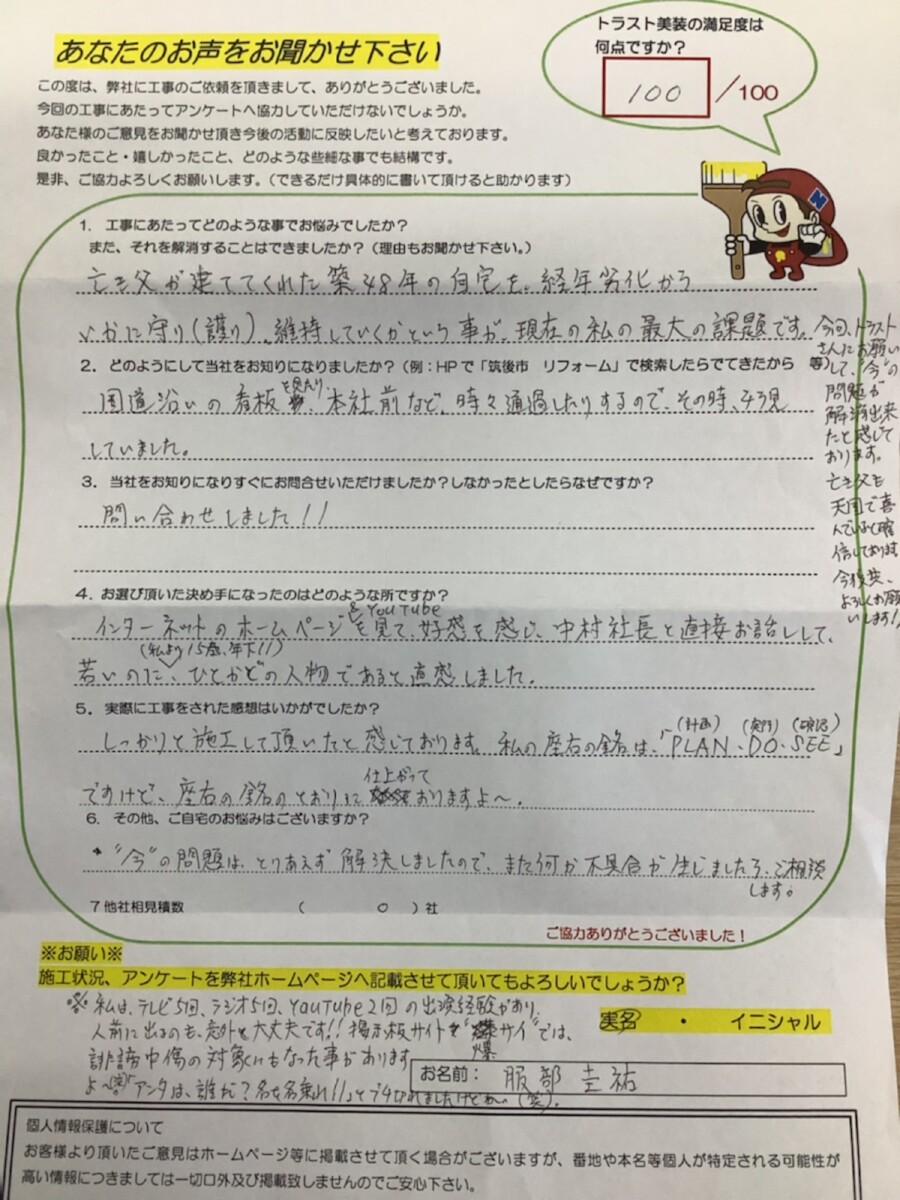 あなたのお声をお聞かせ下さい
トラスト美装の満足度は
何点ですか?
100/100
この度は、弊社に工事のご依頼を頂きまして、ありがとうございました。
今回の工事にあたってアンケートへ協力していただけないでしょうか。
あなた様のご意見をお聞かせ頂き今後の活動に反映したいと考えております。
良かったこと・嬉しかったこと、どのような些細な事でも結構です。
是非、ご協力よろしくお願いします。(できるだけ具体的に書いて頂けると助かります)
N
1. 工事にあたってどのような事でお悩みでしたか?
また、それを解消することはできましたか?(理由もお聞かせ下さい。)
亡き父が建ててくれた築48年の自宅を、経年劣化から
いかに守り(護り)、維持していくかという事が、現在の私の最大の課題です。
今回、トラスト
さんにお願い
して、"今"の
問題が
解消出来
たと感じて
おります。
亡き父も
天国で喜
んでいると確
信しております
今後共、
よろしくお願
いします!!
2. どのようにして当社をお知りになりましたか?(例:HPで「筑後市 リフォーム」で検索したらでてきたから 等)
国道沿いの看板を見たり、本社前など、時々通過したりするので、その時、チラ見
していました。
3. 当社をお知りになりすぐにお問合せいただけましたか?しなかったとしたらなぜですか?
問い合わせしました!!
4. お選び頂いた決め手になったのはどのような所ですか?
インターネットのホームページ&YouTubeを見て、好感を感じ、中村社長と直接お話しして、
(私より15歳、年下!!)
若いのに、ひとかどの人物であると直感しました。
5. 実際に工事をされた感想はいかがでしたか?
(計画) (実行) (確認)
しっかりと施工して頂いたと感じております。私の座右の銘は、「PLAN、DO、SEE」
ですけど、座右の銘のとおりに仕上がっておりますよ〜。
6. その他、ご自宅のお悩みはございますか?
"今"の問題は、とりあえず解決しましたので、また何か不具合が生じましたら、ご相談
します。
7 他社相見積数 ( 0 )社
ご協力ありがとうございました!
※お願い※
施工状況、アンケートを弊社ホームページへ記載させて頂いてもよろしいでしょうか?
実名 ・ イニシャル
※私は、テレビ5回、ラジオ5回、YouTube2回の出演経験があり、
人前に出るのも、意外と大丈夫です!!掲示板サイト"爆サイ"では、
誹謗中傷の対象にもなった事があります
よ〜(笑)「アンタは、誰だ?名を名乗れ!!」と(笑)。
お名前: 服部圭祐
個人情報保護について
お客様より頂いたご意見はホームページ等に掲載させて頂く場合がございますが、番地や本名等個人が特定される可能性が
高い情報につきましては一切口外及び掲載致しませんのでご安心下さい。